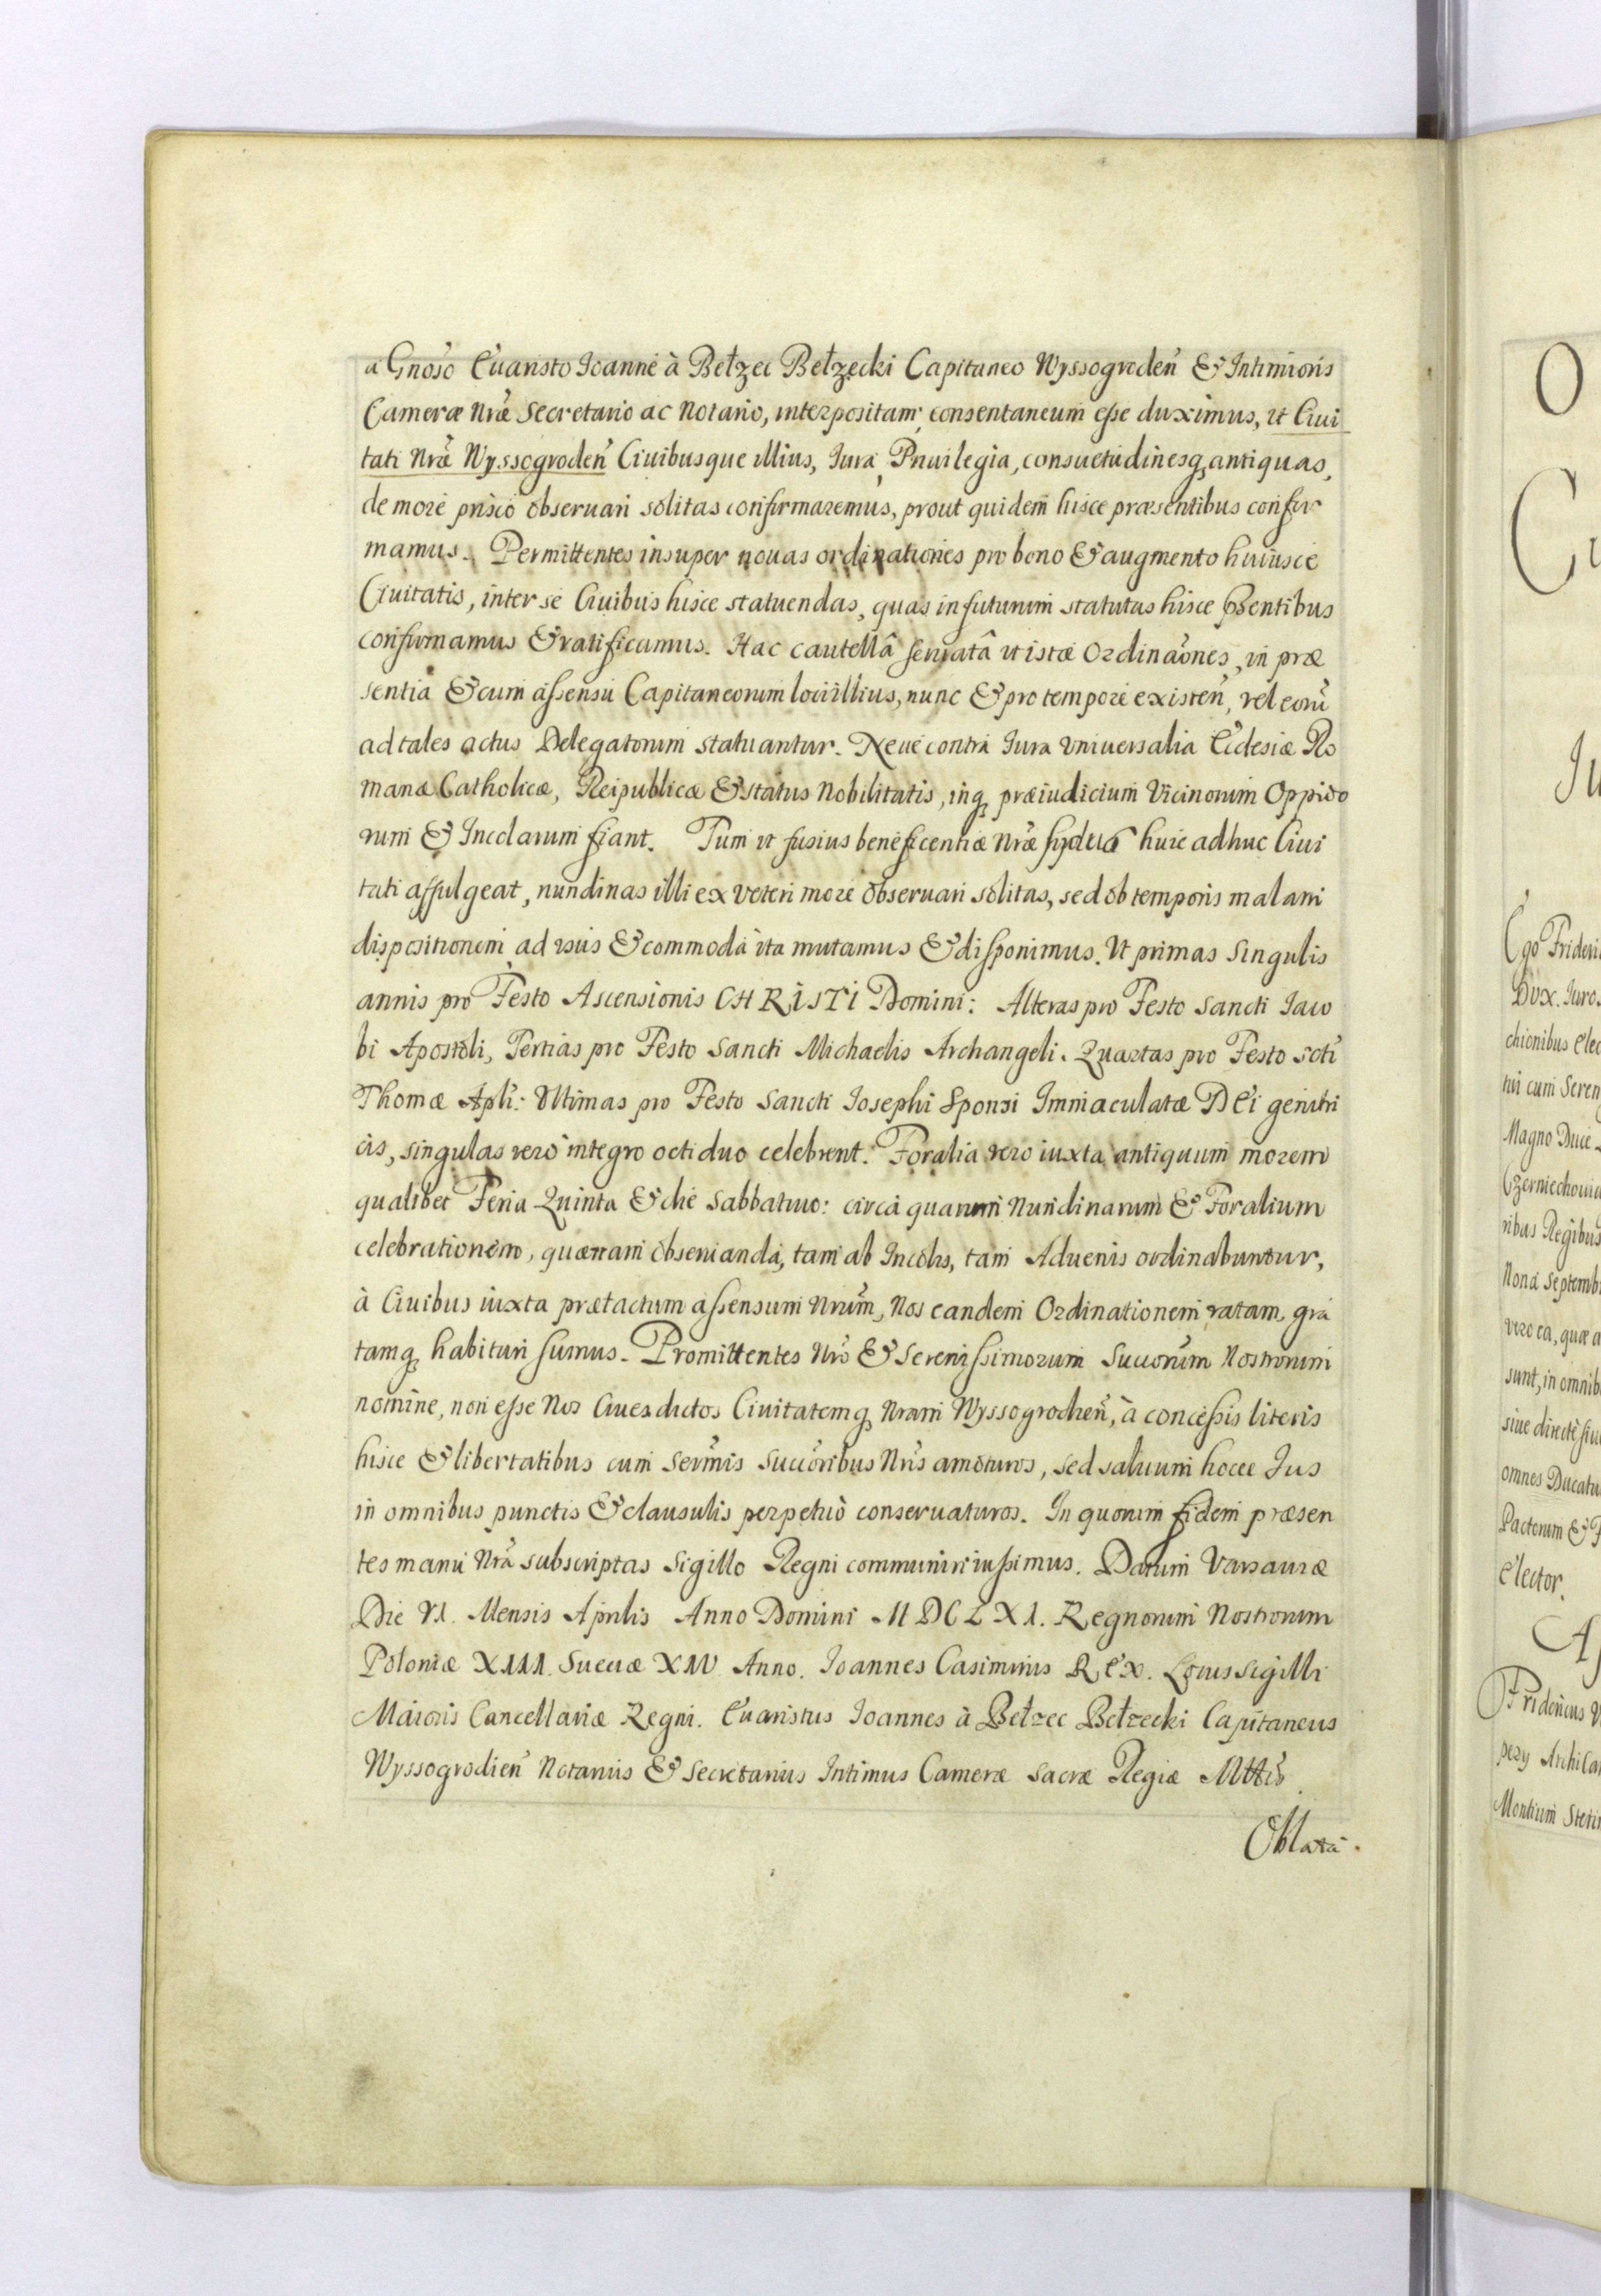 a Gnoso Euaristo Joanne à Bełzec Bełzecki Capitaneo Wyssogroden̄ & Intimioris
Cameræ Nr̄æ Secretario ac Notario, interpositam, consentaneum esse duximus, ut Ciui
tati Nr̄æ Wyssogroden̄ Ciuibusque illius, Iura, Priuilegia, consuetudinesq, antiquas,
de more prisco obseruari solitas confirmaremus, prout quidem hisce præsentibus confir
mamus. Permittentes insuper nouas ordinationes pro bono & augmento huiusce
Ciuitatis, inter se Ciuibus hisce statuendas, quas in futurum statutas hisce pn̄tibus
confirmamus & ratificamus. Hac cautellâ seruatâ ut istæ Ordinao̅nes, in præ
sentia & cum assensu Capitaneorum loci illius, nunc & pro tempore existen̄, vel eorū
ad tales actus Delegatorum statuantur. Neue contra Iura vniuersalia Ecclesiæ Ro
manæ Catholicæ, Reipublicæ & status Nobilitatis, inq, præiudicium Vicinorum Oppido
rum & Incolarum fiant. Tum ut fusius beneficentiæ Nr̄æ sydus huic adhuc Ciui
tati affulgeat, nundinas illi ex veteri more obseruari solitas, sed ob temporis malam
dispositionem ad usus & commoda ita mutamus & disponimus. Ut primas singulis
annis pro Festo Ascensionis CHRISTI Domini: Alteras pro Festo Sancti Iaco
bi Apostoli, Tertias pro Festo Sancti Michaelis Archangeli. Quartas pro Festo Scti
Thomæ Apli: Ultimas pro Festo Sancti Iosephi Sponsi Immaculatæ DEi genitri
cis, singulas vero integro octiduo celebrent. Foralia vero iuxta antiquum morem
qualibet Feria Quinta & die Sabbatiuo: circa quarum Nundinarum & Foralium
celebrationem, quænam obseruanda, tam ab Incolis, tam Aduenis ordinabuntur,
à Ciuibus iuxta prætactum assensum Nrūm, Nos eandem Ordinationem ratam, gra
tamq, habituri sumus. Promittentes Nrō & Serenissimorum Succorūm Nostrorum
nomine, non esse Nos Ciues dictos Ciuitatemq, Nram Wyssogrodien̄, à concessis literis
hisce & libertatibus cum Serm̄is Succōribus Nr̄is amoturos, sed saluum hocce Ius
in omnibus punctis & clausulis perpetuò conseruaturos. In quorum fidem præsen
tes manu Nrā subscriptas Sigillo Regni communiri iussimus. Datum Varsauiæ
Die VI. Mensis Aprilis Anno Domini MDCLXI. Regnorum Nostrorum
Poloniæ XIII. Sueciæ XIV Anno. Ioannes Casimirus REX. Locus Sigilli
Maioris Cancellariæ Regni. Euaristus Ioannes à Bełzec Bełzecki Capitaneus
Wyssogrodien̄ Notarius & Secretarius Intimus Cameræ Sacræ Regiæ Mttis
Oblata.
O
Ju
Ego Frideri
Dux. Iuro
chionibus Elec
tui cum Seren
Magno Duce
Czerniechouiæ
ribus Regibus
Nona Septemb
vero ea, quæ a
sunt, in omnib
siue directè siu
omnes Ducatu
Pactorum & P
Elector.
Fridericus
pery Archi Ca
Montium Stetin